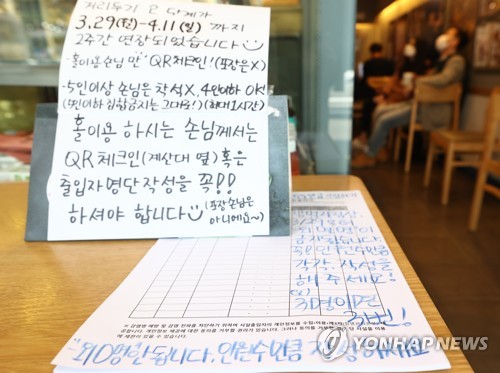 거리두기 2 단계가
3.29(월)-4.11(일) 까지
2주간 연장되었습니다
-홀이용 손님만 QR체크인! (포장은X)
-5인이상 손님은 착석X, 4인이하 OK!
(5인이하 집합금지는 그대로!) (최대 1시간)
홀이용 하시는 손님께서는
QR체크인(계산대 옆) 혹은
출입자명단작성을 꼭!!
하셔야 합니다 (포장손님은
아니에요~)
금지됩니다
꼭! 인원수만큼
각각, 작성을
해주세요!
3명이면
3번!
"외 0명 안됩니다. 인원수만큼
연합뉴스
YONHAP NEWS